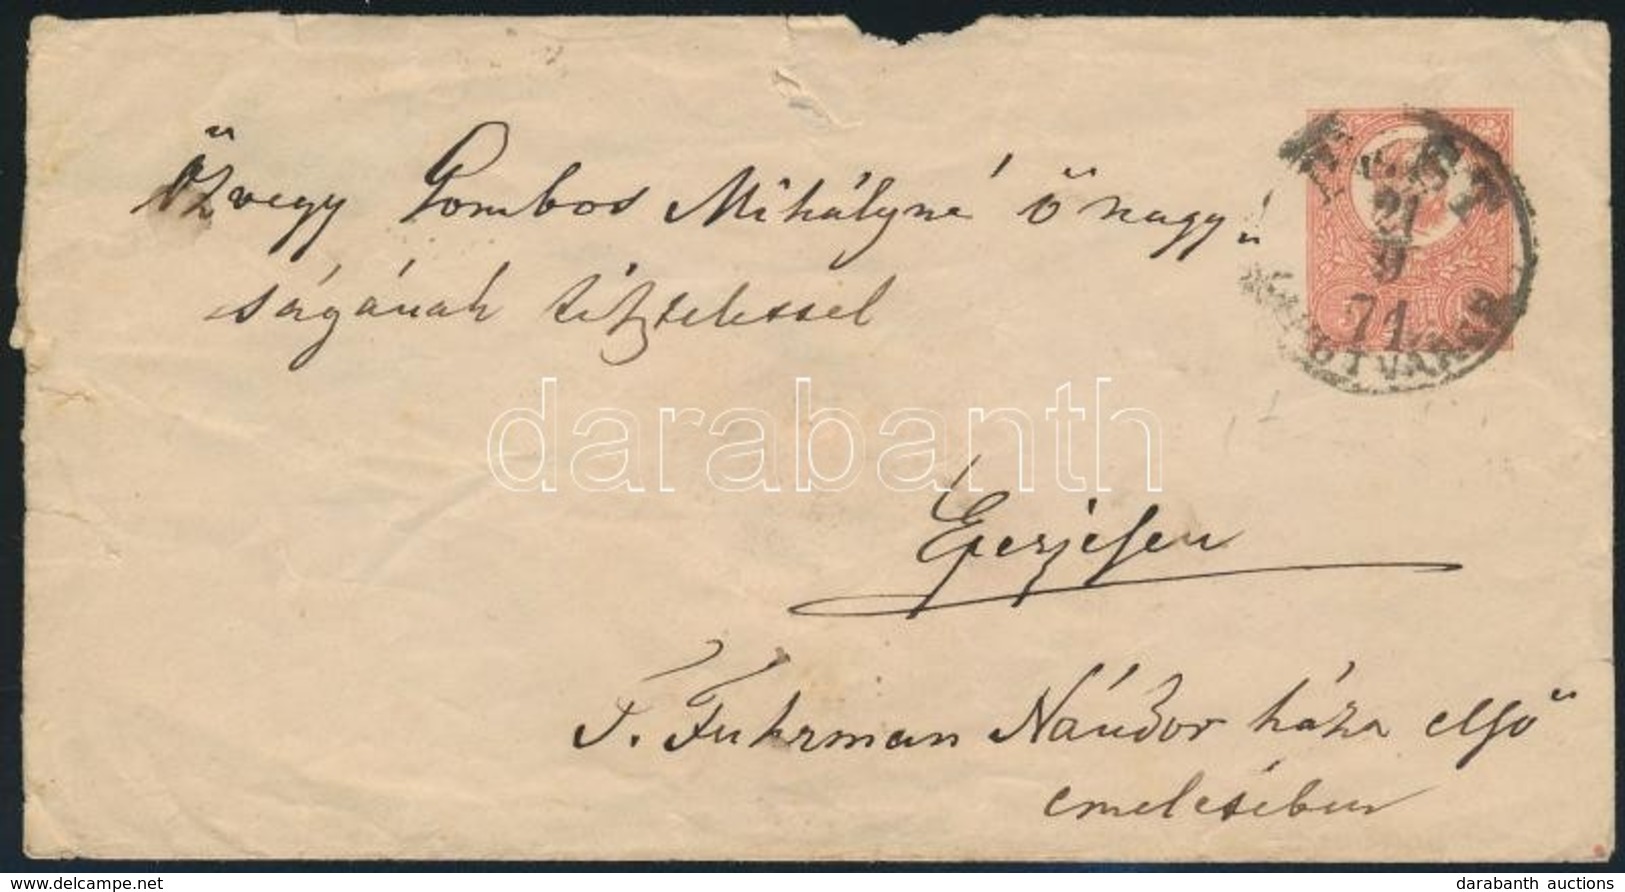 Özvegy Gombos Mihályné ő nagy„
ságának tisztelessel
Eperjesen
T. Fuhrman Nándor háza első
emeletében
PEST
21
9
71
darabanth
delcampe.net
darabanth auctions